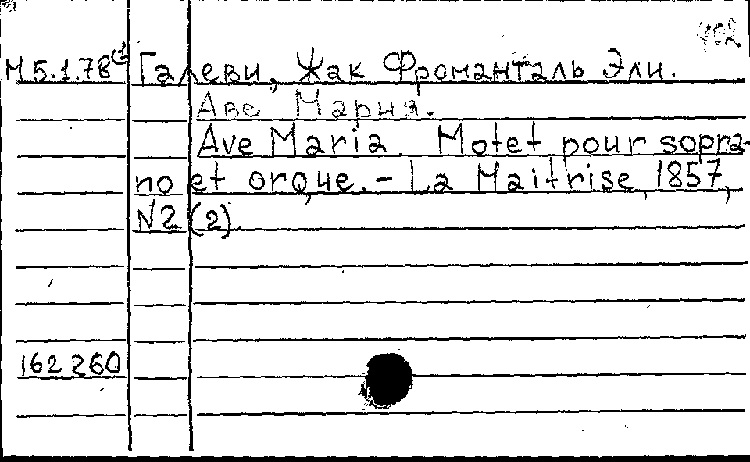 М5.1.78 Галеви, Жак Фроманталь Эли.
Аве Мария.
Ave Maria. Motet pour sopra-
no et orgue. - La Maitrise, 1857,
N2 (2).
162260